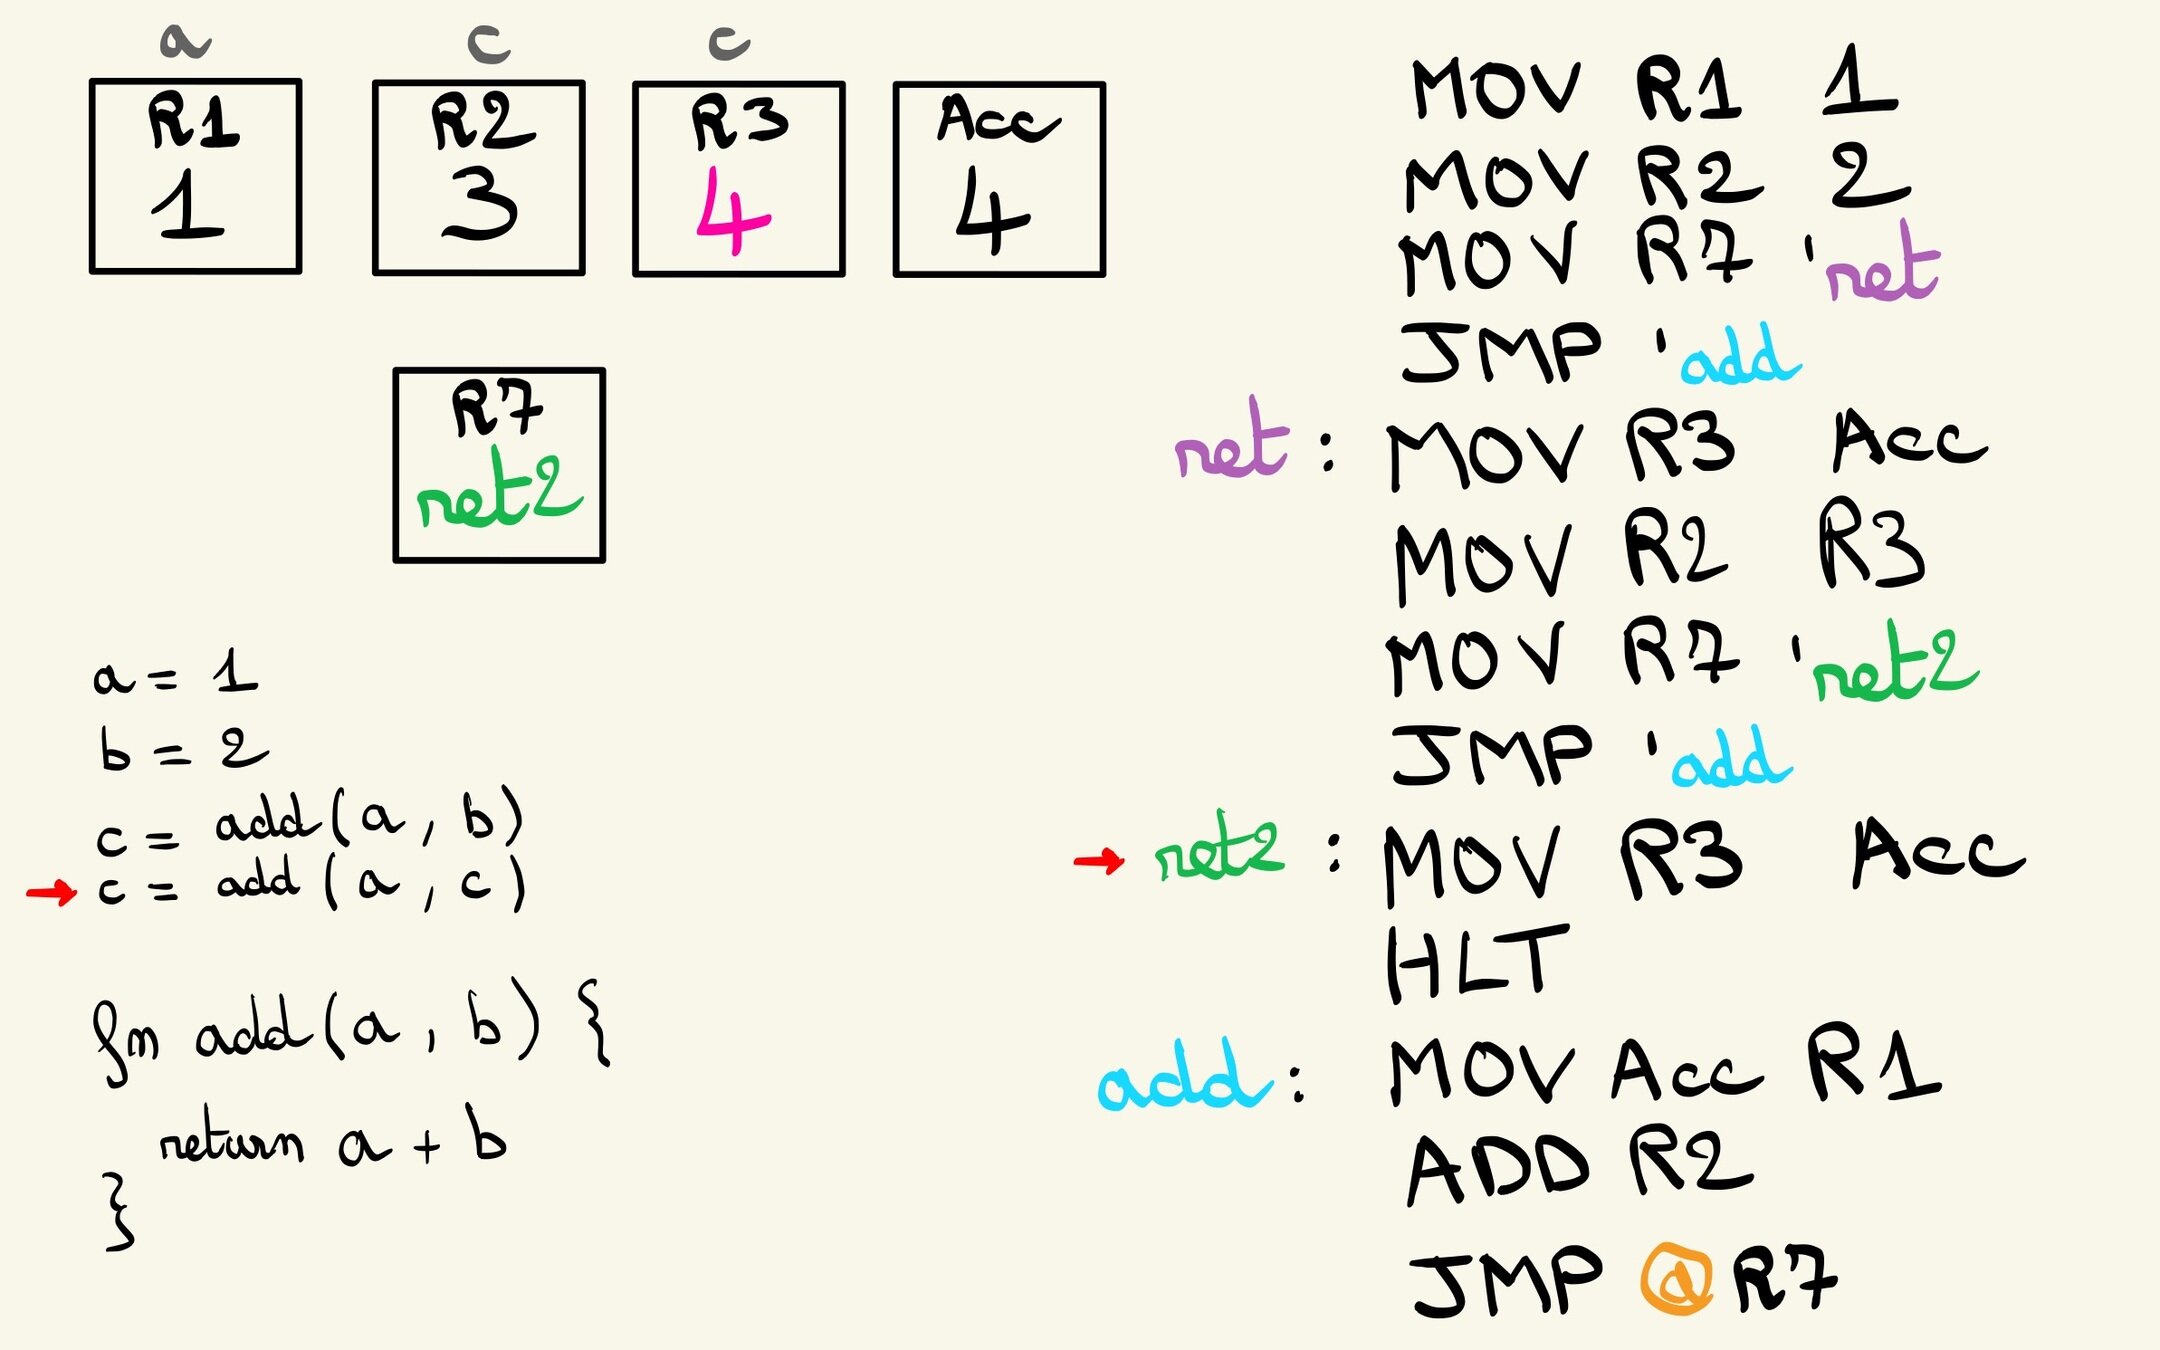 a c c
R1 R2 R3 Acc
1 3 4 4
R7
ret2
a = 1
b = 2
c = add(a, b)
→ c = add(a, c)
fn add(a, b) {
return a + b
}
MOV R1 1
MOV R2 2
MOV R7 'ret
JMP 'add
ret: MOV R3 Acc
MOV R2 R3
MOV R7 'ret2
JMP 'add
→ ret2: MOV R3 Acc
HLT
add: MOV Acc R1
ADD R2
JMP @R7